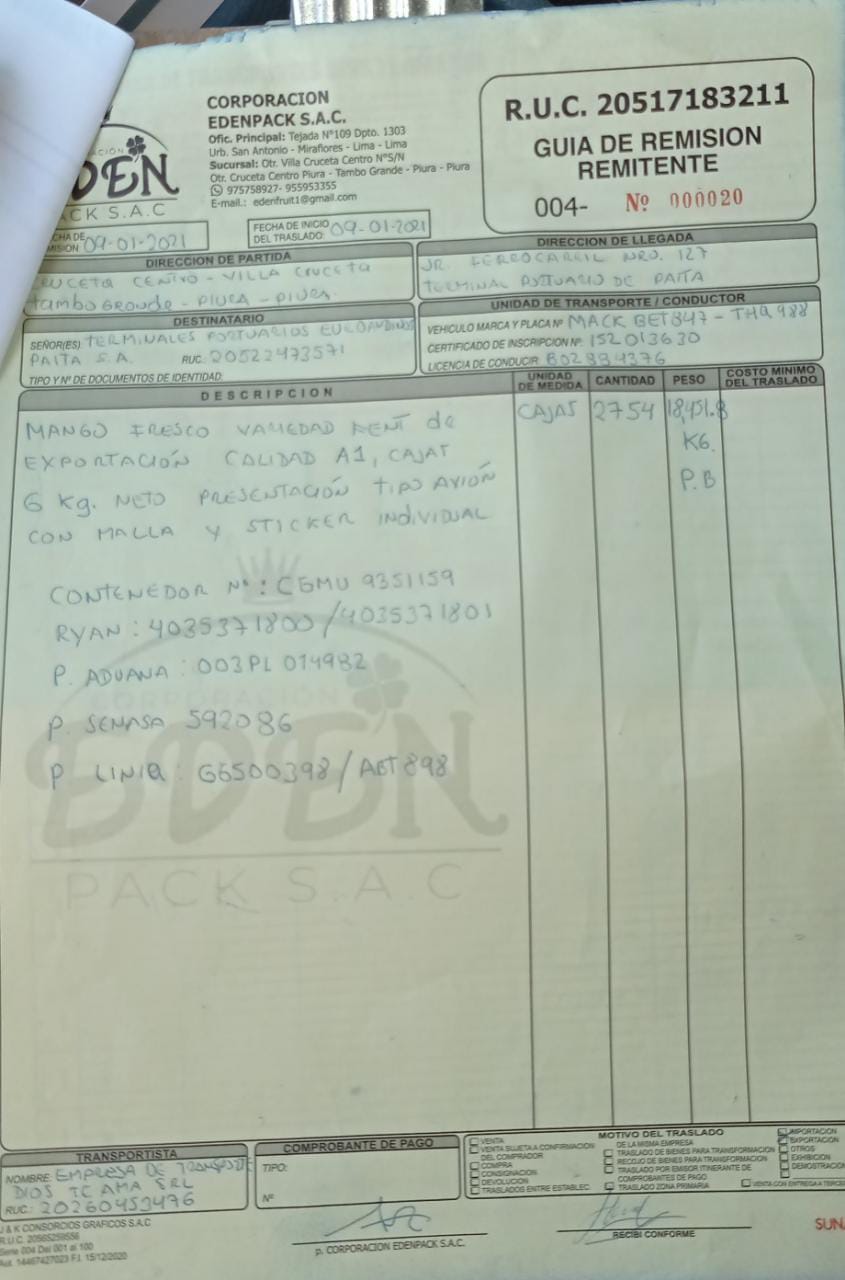 CORPORACION
EDENPACK S.A.C.
Ofic. Principal: Tejada N°109 Dpto. 1303
Urb. San Antonio - Miraflores - Lima - Lima
Sucursal: Otr. Villa Cruceta Centro N°S/N
Otr. Cruceta Centro Piura - Tambo Grande - Piura - Piura
975758927- 955953355
E-mail.: edenfruit1@gmail.com
EDEN
PACK S.A.C
R.U.C. 20517183211
GUIA DE REMISION
REMITENTE
004- Nº 000020
09-01-2021
FECHA DE INICIO
DEL TRASLADO: 09-01-2021
DIRECCION DE PARTIDA
CRUCETA CENTRO - VILLA CRUCETA
TAMBO GRANDE - PIURA - PIURA.
DIRECCION DE LLEGADA
JR. FERROCARRIL NRO. 127
TERMINAL PORTUARIO DE PAITA
DESTINATARIO
SEÑOR(ES) TERMINALES PORTUARIOS EUROANDINOS
PAITA S.A. RUC: 20522473571
TIPO Y Nº DE DOCUMENTOS DE IDENTIDAD:
UNIDAD DE TRANSPORTE / CONDUCTOR
VEHICULO MARCA Y PLACA Nº MACK BET847 - THQ 988
CERTIFICADO DE INSCRIPCION Nº: 152013630
LICENCIA DE CONDUCIR: B02884376
DESCRIPCION
UNIDAD DE MEDIDA
CANTIDAD
PESO
COSTO MINIMO DEL TRASLADO
MANGO FRESCO VARIEDAD KENT de CAJAS 2754 18,451.8
EXPORTACIÓN CALIDAD A1, CAJAS KG.
6 Kg. NETO PRESENTACIÓN TIPO AVIÓN P.B
CON MALLA Y STICKER INDIVIDUAL
CONTENEDOR Nº: CGMU 9351159
RYAN: 4035371800/4035371801
P. ADUANA: 003PL 014982
P. SENASA 592086
P LINIA: G6500398/ABT898
CORPORACION
EDEN
PACK S.A.C
TRANSPORTISTA
NOMBRE: EMPRESA DE TRANSPORTE
DIOS TE AMA SRL
RUC.: 20260453476
COMPROBANTE DE PAGO
TIPO:
Nº
MOTIVO DEL TRASLADO
VENTA
VENTA SUJETA A CONFIRMACION
DEL COMPRADOR
COMPRA
CONSIGNACION
DEVOLUCION
TRASLADOS ENTRE ESTABLEC.
DE LA MISMA EMPRESA
TRASLADO DE BIENES PARA TRANSFORMACION
RECOJO DE BIENES PARA TRANSFORMACION
TRASLADO POR EMISOR ITINERANTE DE
COMPROBANTES DE PAGO
TRASLADO ZONA PRIMARIA
IMPORTACION
EXPORTACION
OTROS
EXHIBICION
DEMOSTRACION
J & K CONSORCIOS GRAFICOS S.A.C
R.U.C. 20565259556
Serie 004 Del 001 al 100
Aut. 14467427023 F.I. 15/12/2020
p. CORPORACION EDENPACK S.A.C.
RECIBI CONFORME